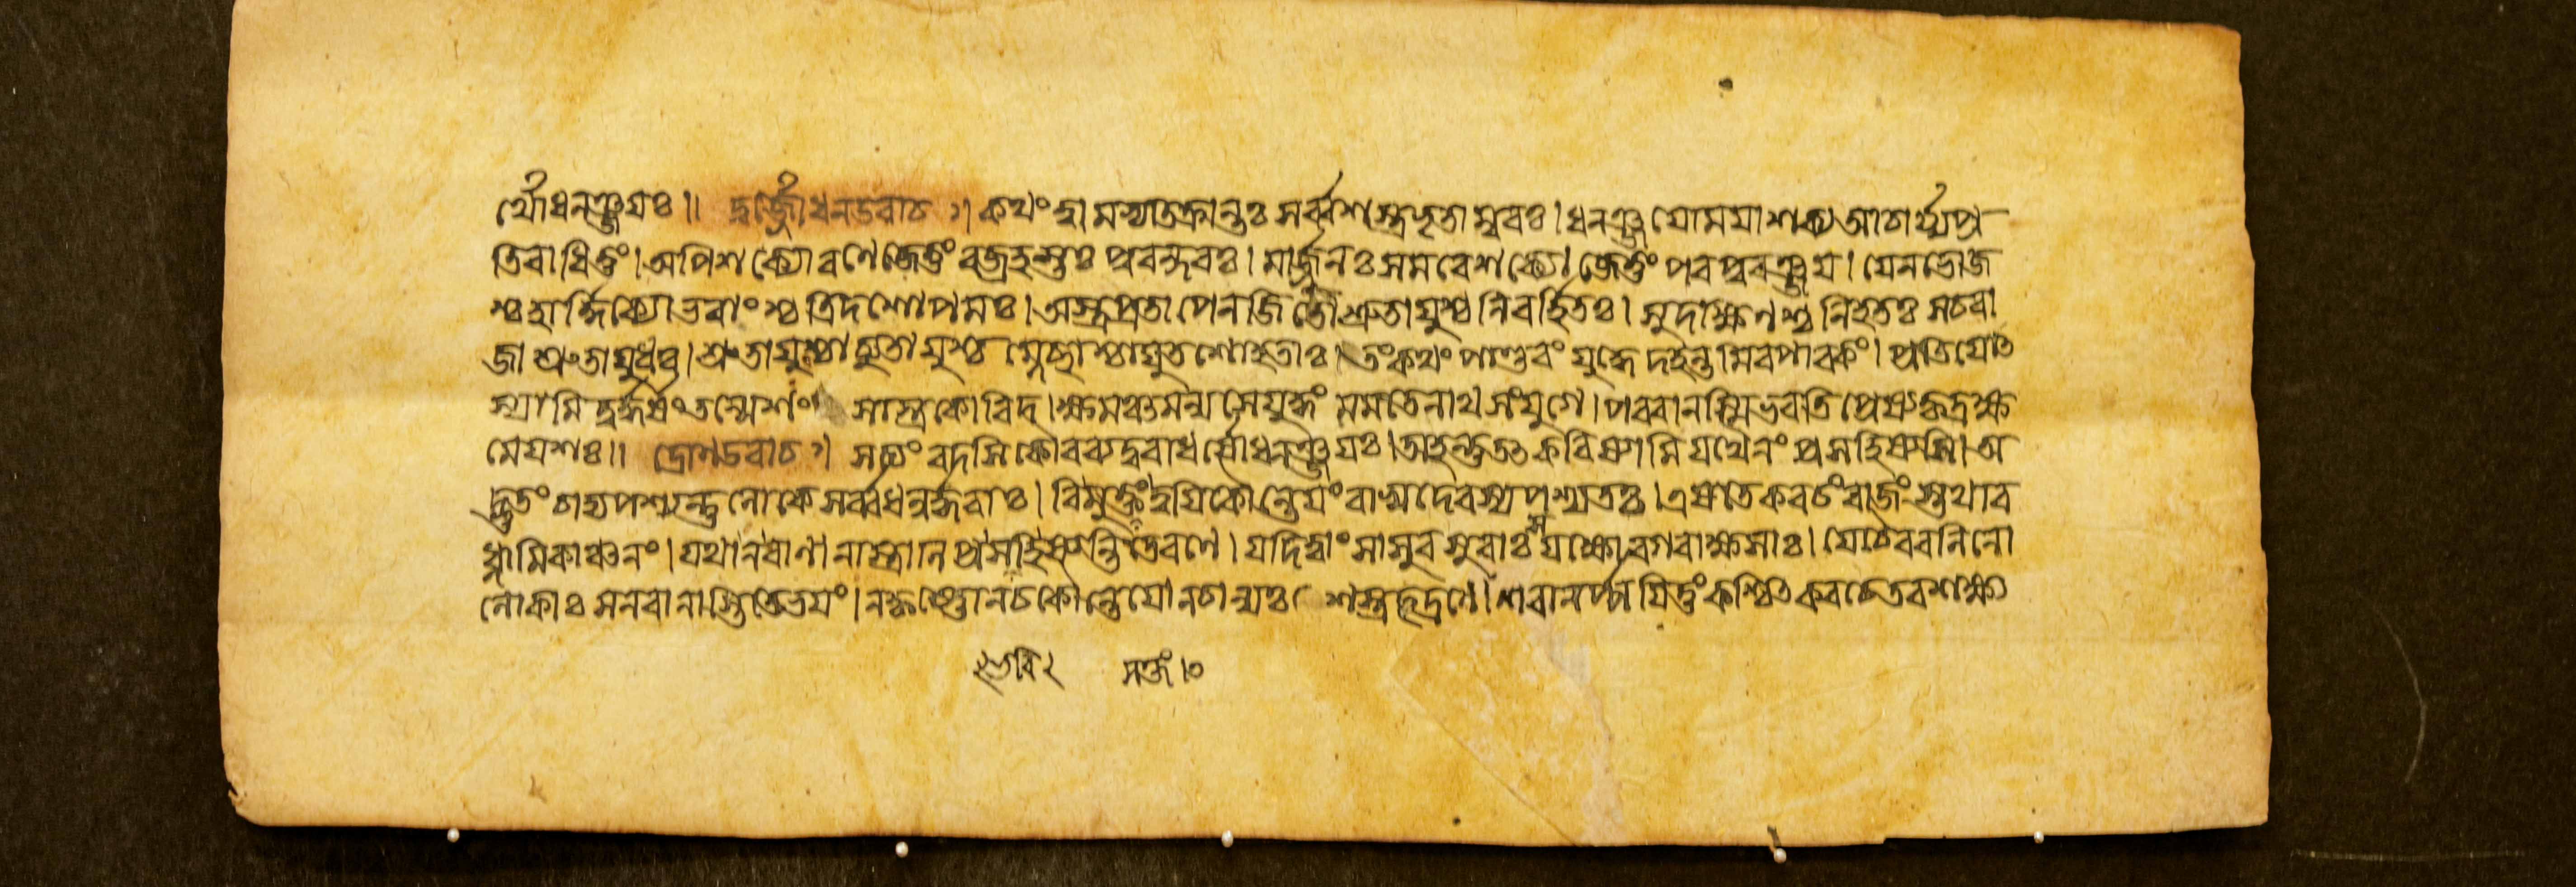 র্ষোধনঞ্জয়ঃ॥ দুর্জ্জোধনউবাচ। কথংত্বামপ্যতিক্রান্তঃ সর্ব্বশস্ত্রভৃতাম্বরঃ।ধনঞ্জয়োময়াশক্যআচার্য্যপ্র
তিবাধিতুং।অপিশক্যোরণেজেতুংবজ্রহস্তঃ পুরন্দরঃ।নার্জ্জুনঃসমরেশক্যোজেতুংপরপুরঞ্জয়।যেনভোজ
শ্চহার্দ্দিক্যোভবাংশ্চত্রিদশোপমঃ।অস্ত্রপ্রতাপেনজিতৌশ্রুতায়ুশ্চনিবর্হিতঃ। সুদক্ষিণশ্চনিহতঃ সচরা
জাশ্রুতায়ুধঃ।শ্রুতায়ুশ্চাচ্যুতায়ুশ্চম্লেচ্ছাশ্চায়ুতশোহতাঃ।তংকথংপাণ্ডবংযুদ্ধেদহন্তমিবপাবকং।প্রতিযোৎ
স্যামিদুর্দ্ধর্ষংতন্মেশংসাস্ত্রকোবিদ।ক্ষমঞ্চমন্যসেযুদ্ধংমমতেনাথসংযুগে।পরবানস্মিভবতিপ্রেষ্যকৃদ্রক্ষ
মেযশঃ॥ দ্রোণউবাচ। সত্যংবদসিকৌরব্যদুরাধর্ষোধনঞ্জয়ঃ।অহন্তুতৎকরিষ্যামিযথৈনংপ্রসহিষ্যসি।অ
দ্ভুতংচাদ্যপশ্যন্তুলোকেসর্ব্বধনুর্দ্ধরাঃ।বিষক্তংত্বয়িকৌন্তেয়ংবাসুদেবস্যপশ্যতঃ।এষতেকবচংরাজংস্তথাব
ধ্নামিকাঞ্চনং।যথানবাণানাস্ত্রানিপ্রসহিষ্যন্তিতেরণে।যদিত্বাংসাসুরসুরাঃসযক্ষোরগরাক্ষসাঃ।
লোকাঃসনরানাস্তিতেভয়ং।নকৃষ্ণোনচকৌন্তেয়োনচান্যঃ শস্ত্রভৃদ্রণে।শরানর্প্পয়িতুংকশ্চিৎকবচেতবশক্ষ্য